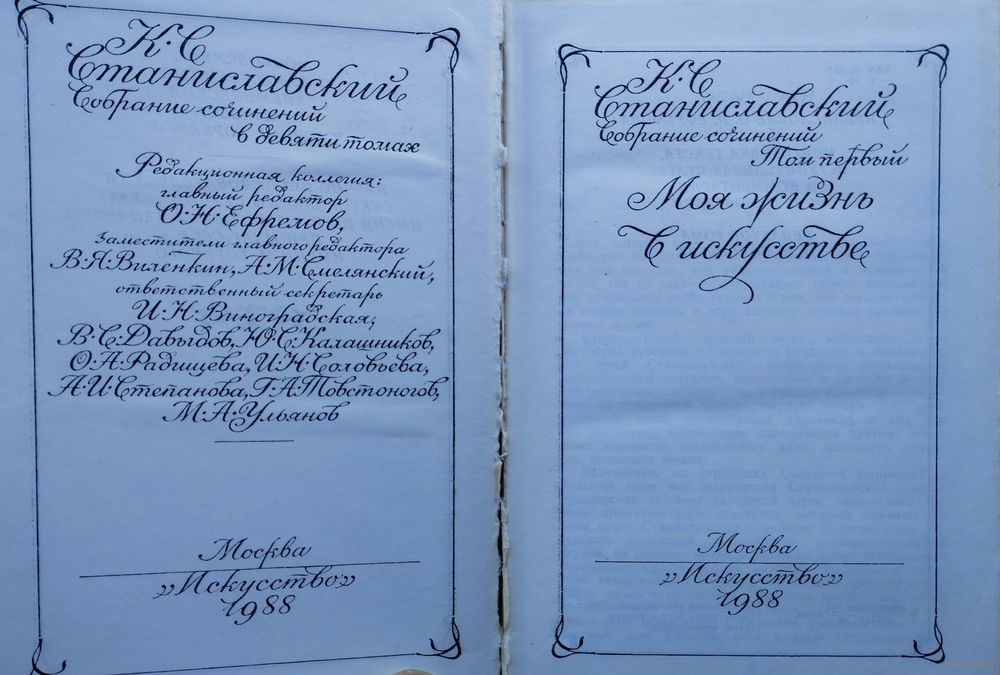 К·С
Станиславский
Собрание сочинений
в девяти томах
Редакционная коллегия:
главный редактор
О·Н·Ефремов,
заместители главного редактора
В·Я·Виленкин, А·М·Смелянский,
ответственный секретарь
И·Н·Виноградская,
В·С·Давыдов, Ю·С·Калашников,
О·А·Радищева, И·Н·Соловьева,
А·И·Степанова, Г·А·Товстоногов,
М·А·Ульянов
Москва
»Искусство»
1988
К·С
Станиславский
Собрание сочинений
Том первый
Моя жизнь
в искусстве
Москва
»Искусство»
1988